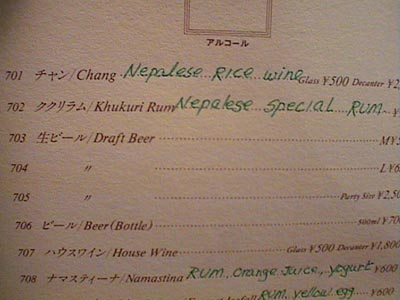 アルコール
701 チャン/Chang Nepalese rice wine Glass ¥500 Decanter ¥2,
702 ククリラム/Khukuri Rum Nepalese special rum
703 生ビール/Draft Beer M¥5
704 〃 L¥6
705 〃 Party Size ¥2,50
706 ビール/Beer(Bottle) 500ml ¥70
707 ハウスワイン/House Wine Glass ¥500 Decanter ¥1,800
708 ナマスティーナ/Namastina Rum, orange juice, yogurt ¥600
Rum, yellow egg ¥600